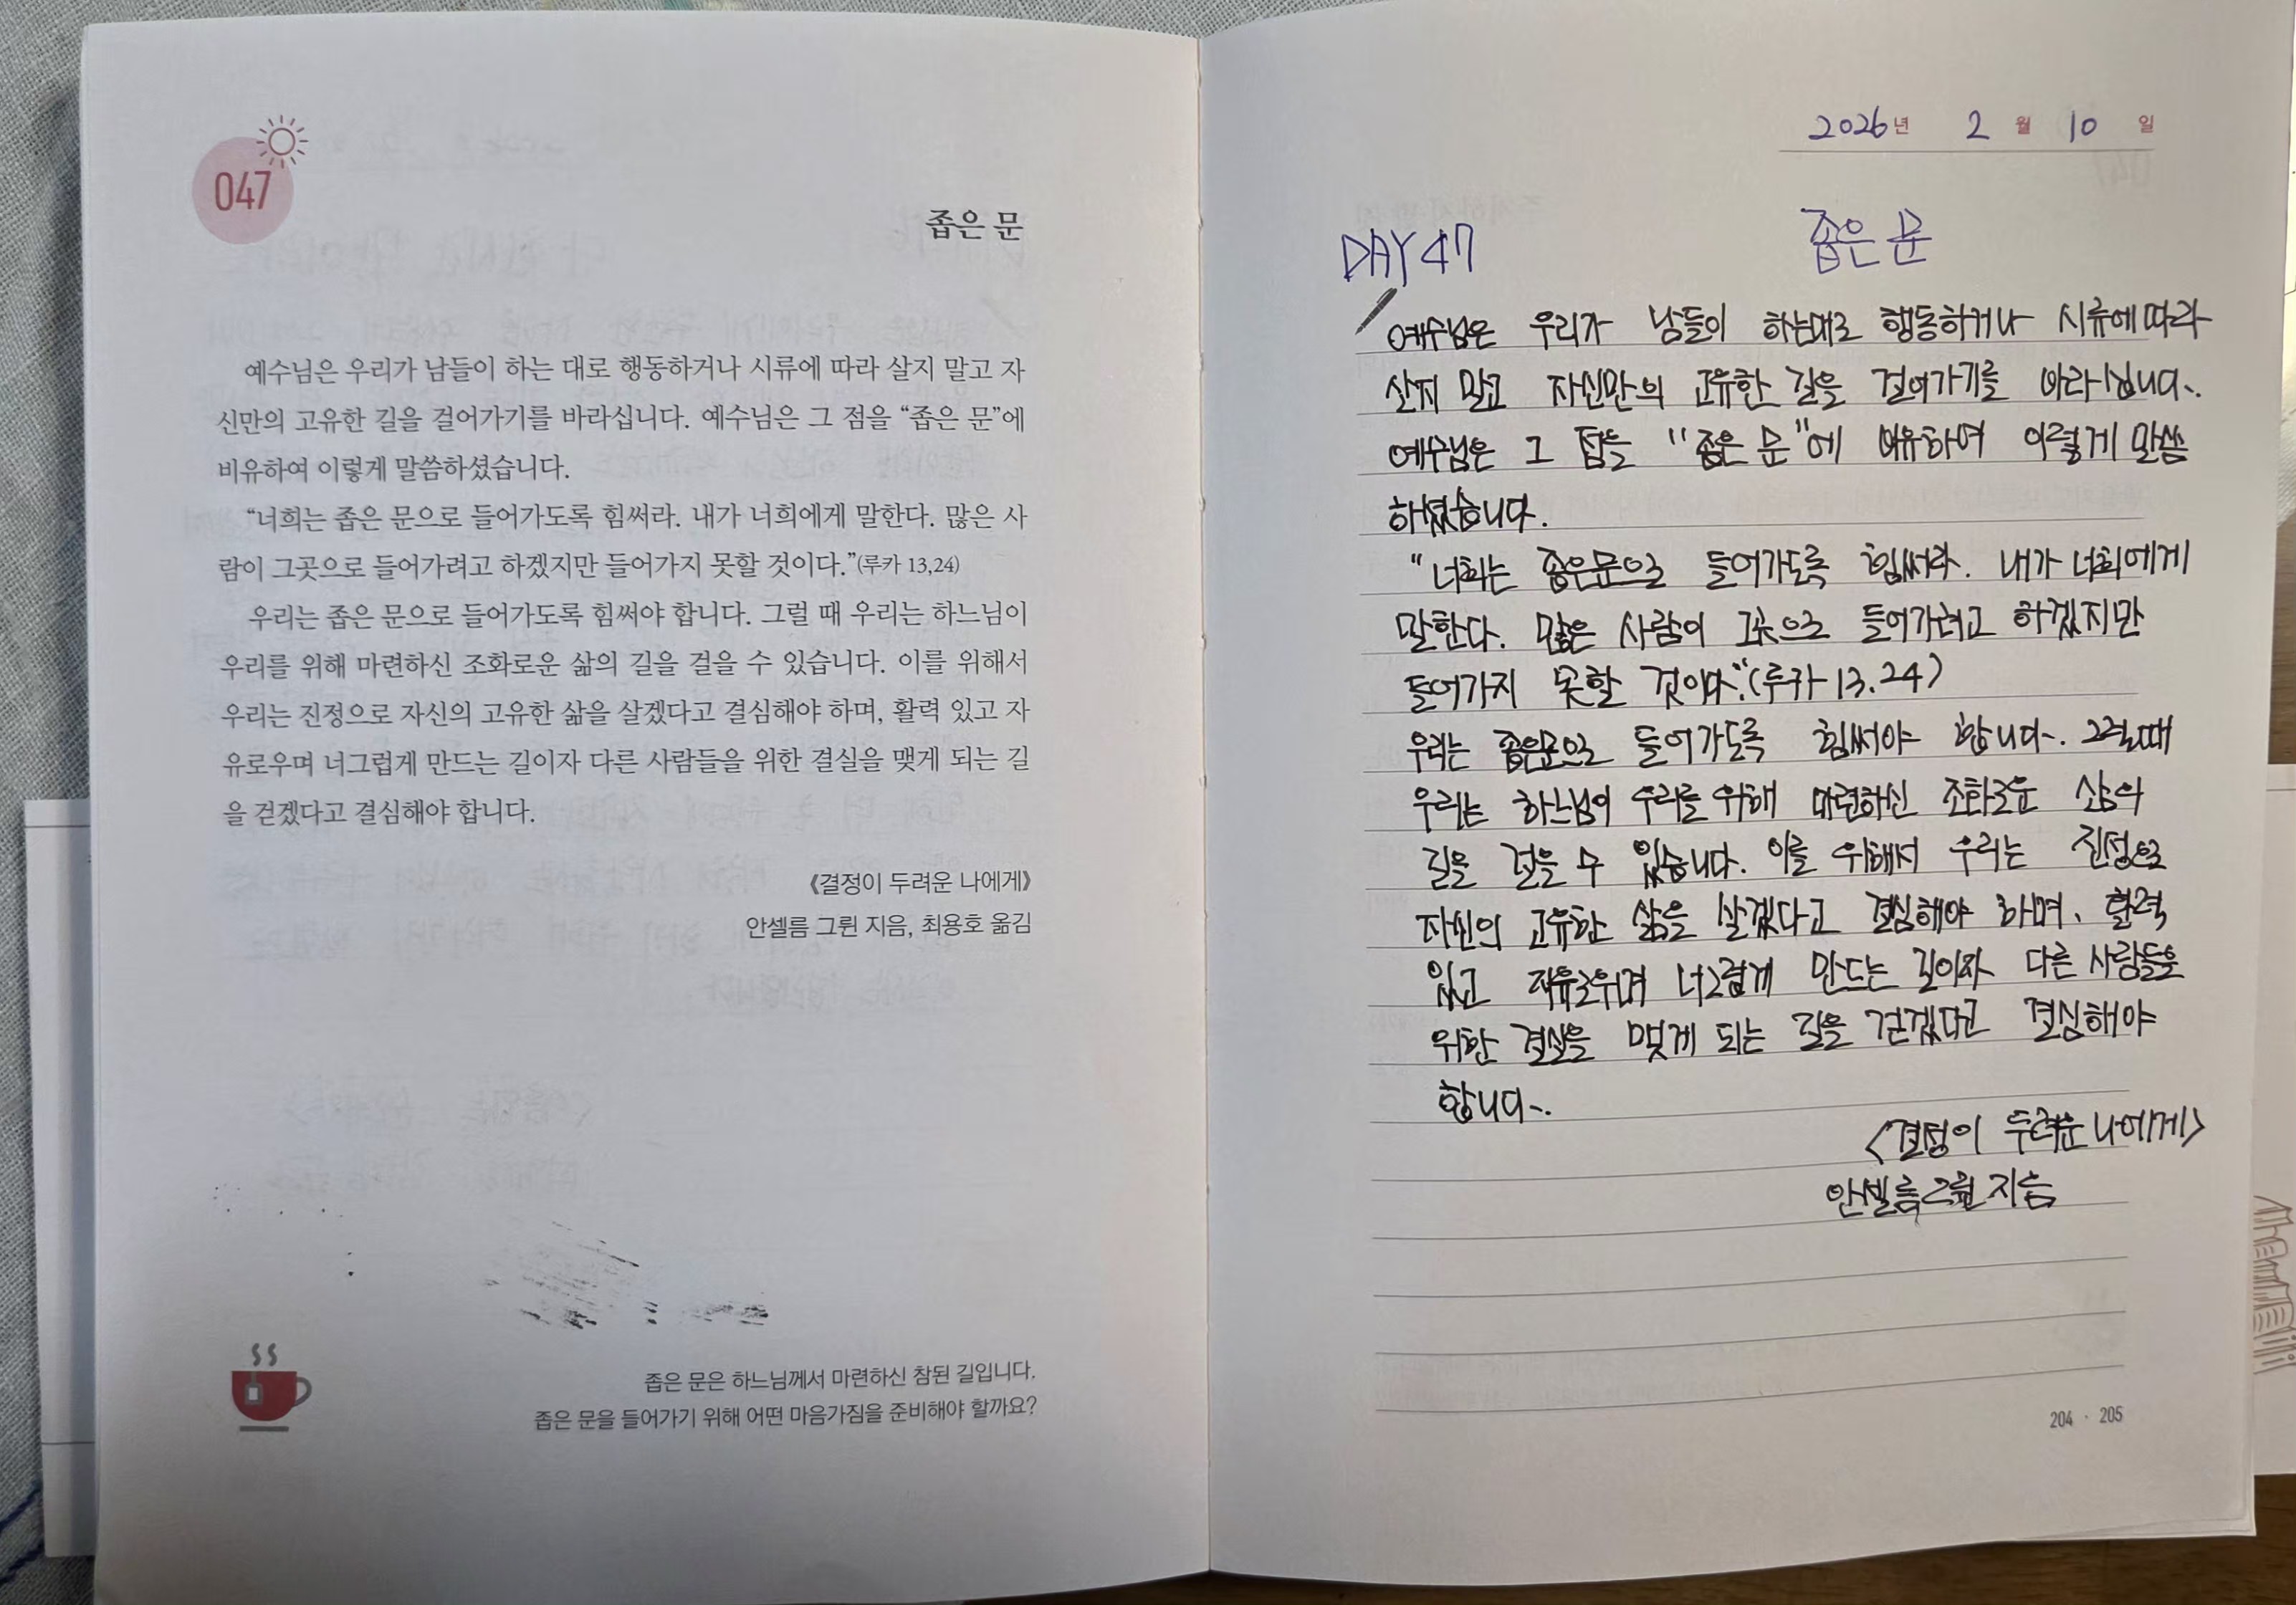 047
좁은 문
예수님은 우리가 남들이 하는 대로 행동하거나 시류에 따라 살지 말고 자
신만의 고유한 길을 걸어가기를 바라십니다. 예수님은 그 점을 “좁은 문”에
비유하여 이렇게 말씀하셨습니다.
“너희는 좁은 문으로 들어가도록 힘써라. 내가 너희에게 말한다. 많은 사
람이 그곳으로 들어가려고 하겠지만 들어가지 못할 것이다.”(루카 13,24)
우리는 좁은 문으로 들어가도록 힘써야 합니다. 그럴 때 우리는 하느님이
우리를 위해 마련하신 조화로운 삶의 길을 걸을 수 있습니다. 이를 위해서
우리는 진정으로 자신의 고유한 삶을 살겠다고 결심해야 하며, 활력 있고 자
유로우며 너그럽게 만드는 길이자 다른 사람들을 위한 결실을 맺게 되는 길
을 걷겠다고 결심해야 합니다.
《결정이 두려운 나에게》
안셀름 그륀 지음, 최용호 옮김
좁은 문은 하느님께서 마련하신 참된 길입니다.
좁은 문을 들어가기 위해 어떤 마음가짐을 준비해야 할까요?
2026년 2월 10일
DAY 47 좁은 문
예수님은 우리가 남들이 하는대로 행동하거나 시류에 따라
살지 말고 자신만의 고유한 길을 걸어가기를 바라십니다.
예수님은 그 점을 “좁은 문”에 비유하여 이렇게 말씀
하셨습니다.
“너희는 좁은문으로 들어가도록 힘써라. 내가 너희에게
말한다. 많은 사람이 그곳으로 들어가려고 하겠지만
들어가지 못할 것이다.”(루카 13.24)
우리는 좁은문으로 들어가도록 힘써야 합니다. 그럴때
우리는 하느님이 우리를 위해 마련하신 조화로운 삶의
길을 걸을 수 있습니다. 이를 위해서 우리는 진정으로
자신의 고유한 삶을 살겠다고 결심해야 하며, 활력
있고 자유로우며 너그럽게 만드는 길이자 다른 사람들을
위한 결실을 맺게 되는 길을 걷겠다고 결심해야
합니다.
<결정이 두려운 나에게>
안셀름 그륀 지음
204 · 205